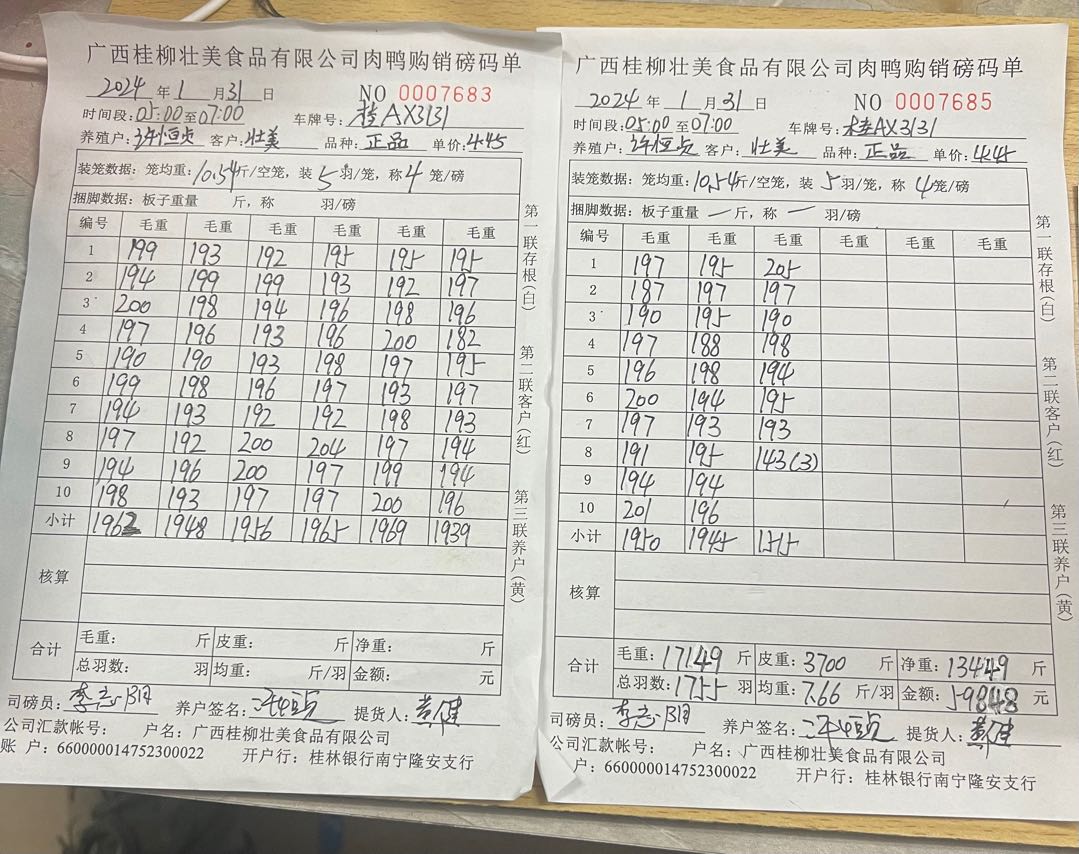 广西桂柳壮美食品有限公司肉鸭购销磅码单
2024 年 1 月 31 日 NO 0007683
时间段: 05:00 至 07:00 车牌号: 桂AX3131
养殖户: 许恒贞 客户: 壮美 品种: 正品 单价: 4.45
装笼数据: 笼均重: 10.54 斤/空笼, 装 5 羽/笼, 称 4 笼/磅
捆脚数据: 板子重量 斤, 称 羽/磅
编号 毛重 毛重 毛重 毛重 毛重 毛重
1 199 193 192 195 195 195
2 194 199 199 193 192 197
3 200 198 194 196 198 196
4 197 196 193 196 200 182
5 190 190 193 198 197 195
6 199 198 196 197 193 197
7 194 193 192 192 198 193
8 197 192 200 204 197 194
9 194 196 200 197 199 194
10 198 193 197 197 200 196
小计 1962 1948 1956 1965 1969 1939
核算
合计 毛重: 斤 皮重: 斤 净重: 斤
总羽数: 羽 均重: 斤/羽 金额: 元
司磅员: 李志阳 养户签名: 许恒贞 提货人: 黄健
公司汇款帐号: 户名: 广西桂柳壮美食品有限公司
账 户: 660000014752300022 开户行: 桂林银行南宁隆安支行
第一联存根(白) 第二联客户(红) 第三联养户(黄)
广西桂柳壮美食品有限公司肉鸭购销磅码单
2024 年 1 月 31 日 NO 0007685
时间段: 05:00 至 07:00 车牌号: 桂AX3131
养殖户: 许恒贞 客户: 壮美 品种: 正品 单价: 4.45
装笼数据: 笼均重: 10.54 斤/空笼, 装 5 羽/笼, 称 4 笼/磅
捆脚数据: 板子重量 — 斤, 称 — 羽/磅
编号 毛重 毛重 毛重 毛重 毛重 毛重
1 197 195 205
2 187 197 197
3 190 195 190
4 197 188 198
5 196 198 194
6 200 194 195
7 197 193 193
8 191 195 143(3)
9 194 194
10 201 196
小计 1950 1945 1515
核算
合计 毛重: 17149 斤 皮重: 3700 斤 净重: 13449 斤
总羽数: 1755 羽 均重: 7.66 斤/羽 金额: 59848 元
司磅员: 李志阳 养户签名: 许恒贞 提货人: 黄健
公司汇款帐号: 户名: 广西桂柳壮美食品有限公司
户: 660000014752300022 开户行: 桂林银行南宁隆安支行
第一联存根(白) 第二联客户(红) 第三联养户(黄)